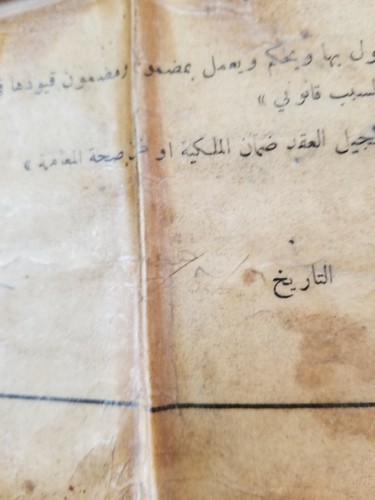 بها ويحكم ويعمل بمضمون قيودها
لسبب قانوني »
العقد ضمان الملكية او صحة المعاملة »
التاريخ